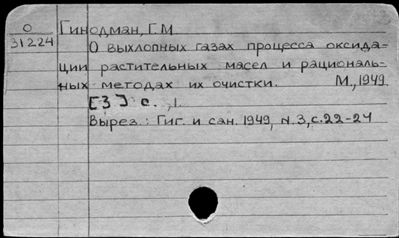 О
31224
Гинодман, Г.М.
О выхлопных газах процесса оксида-
ции растительных масел и рациональ-
ных методах их очистки. М., 1949
[3] с., 1.
Вырез.: Гиг. и сан. 1949, N.3, с.22-24